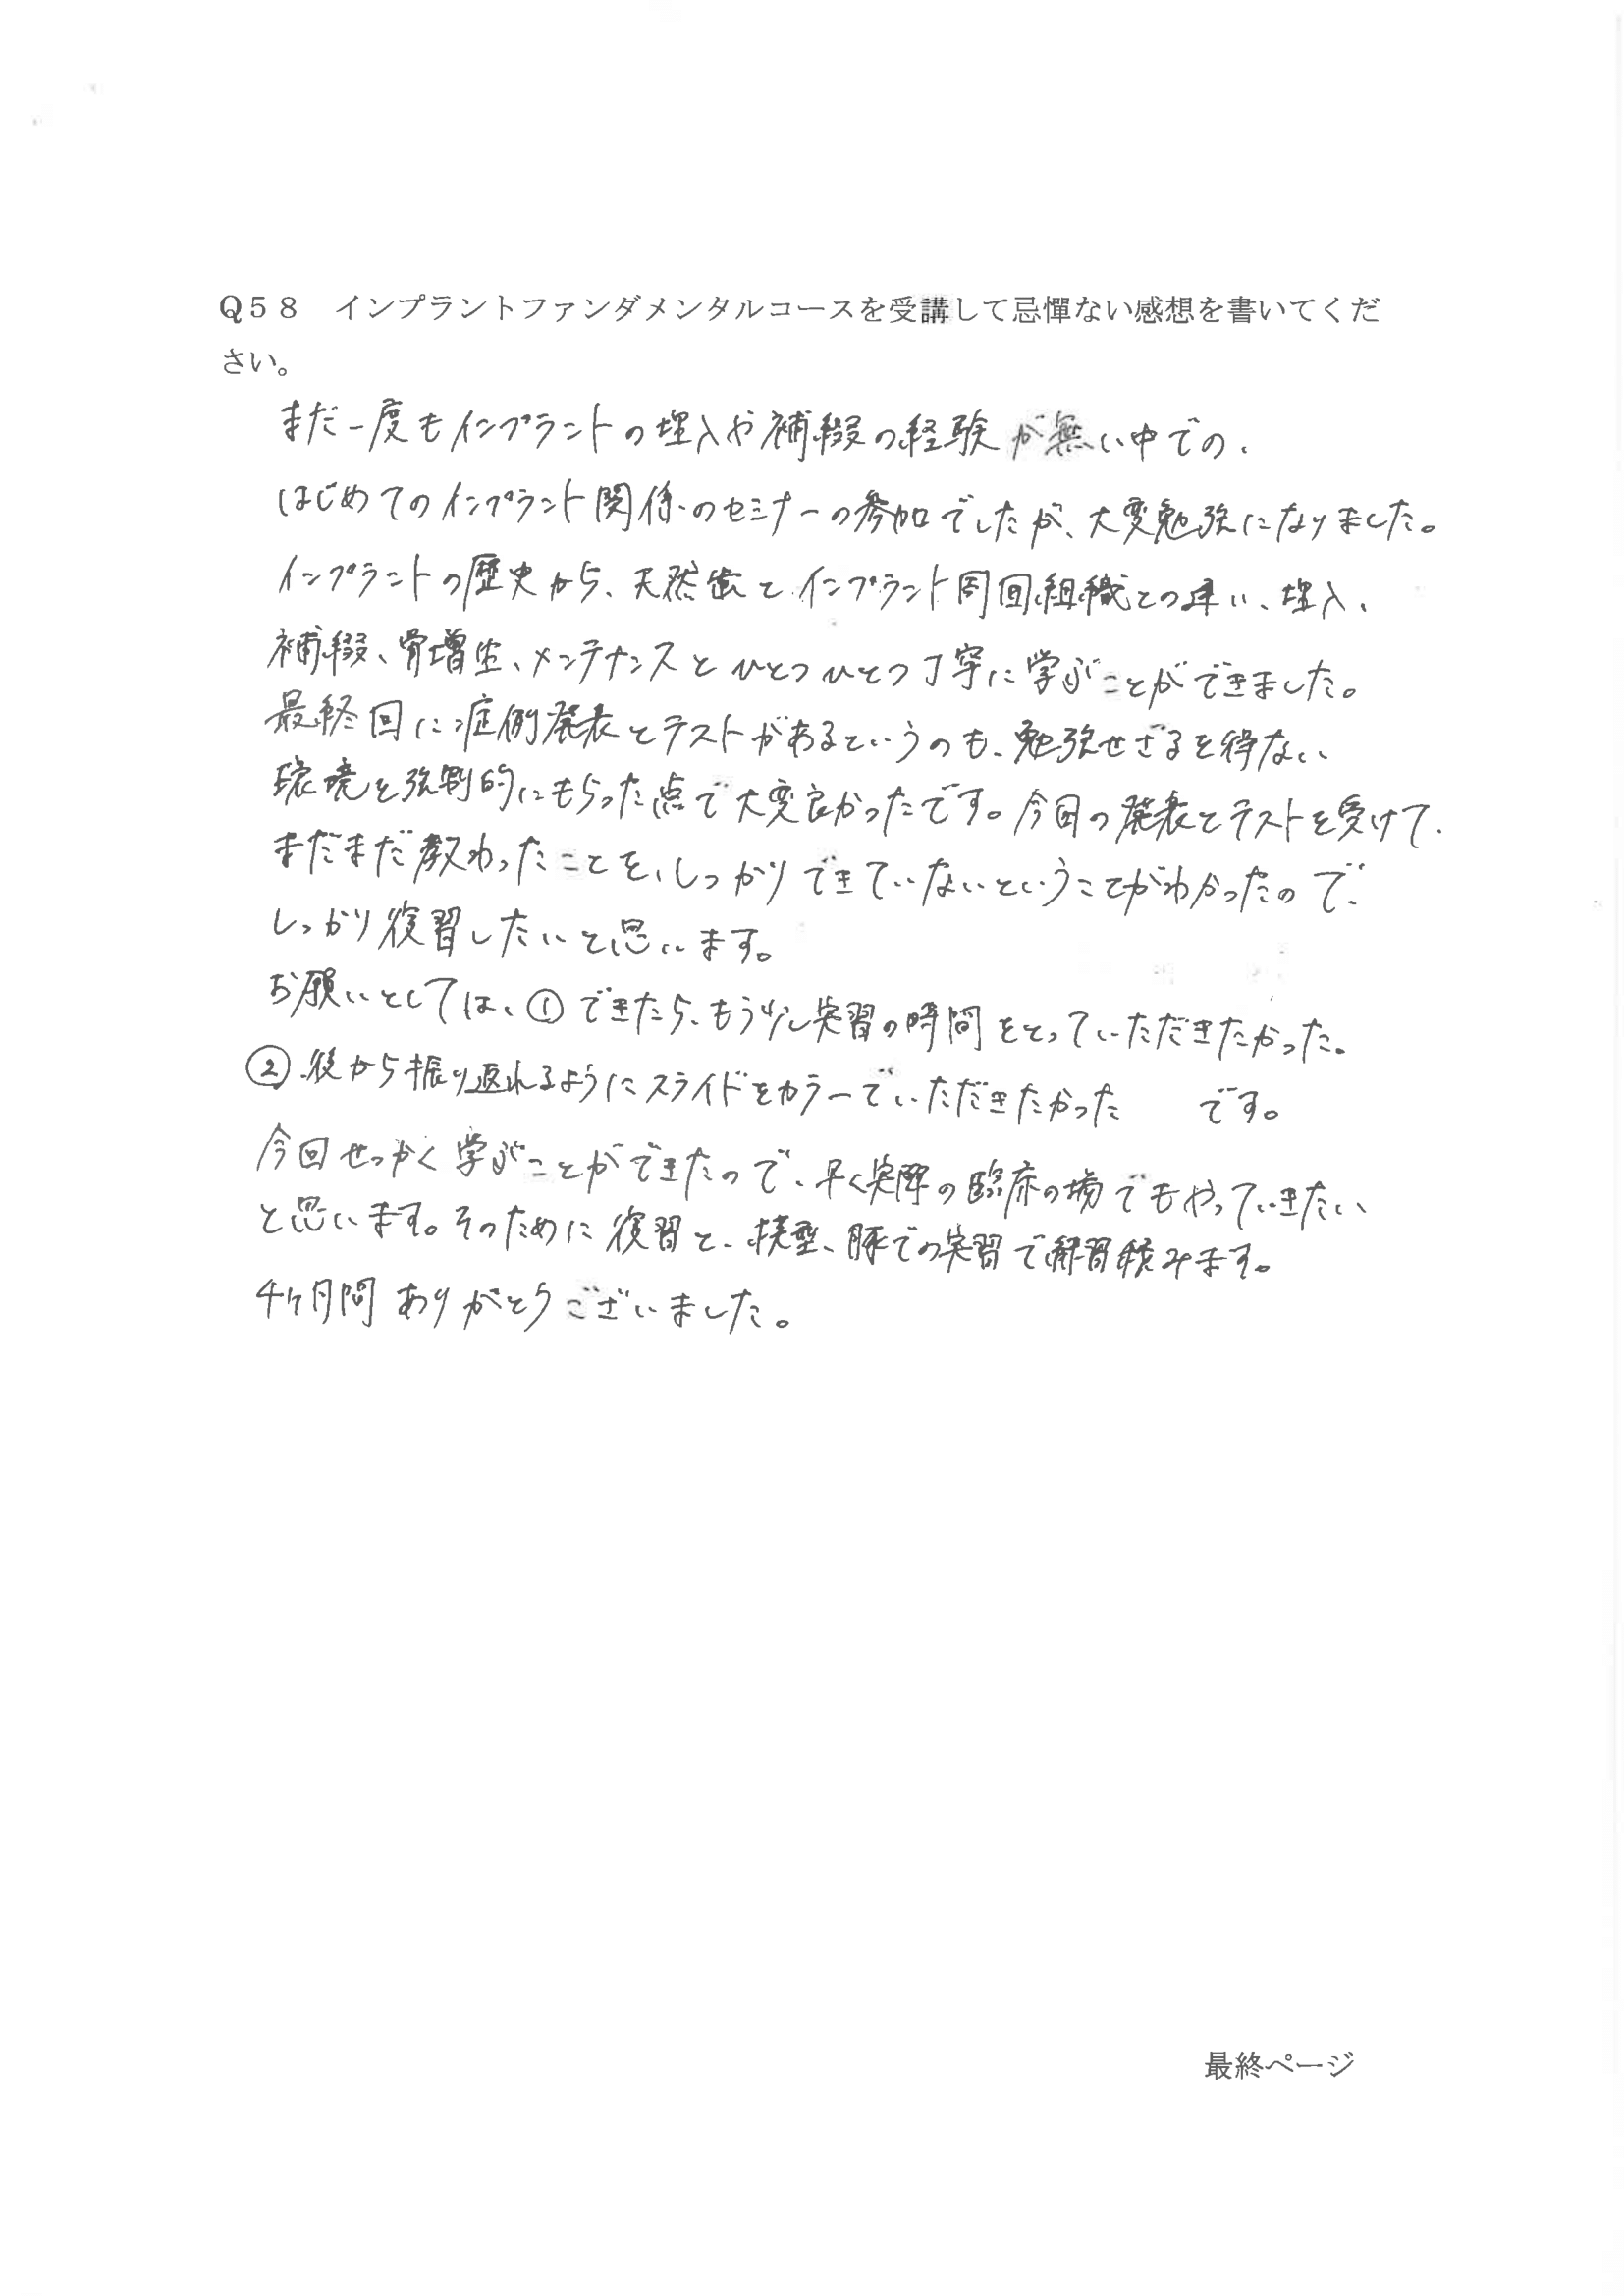 Q58　インプラントファンダメンタルコースを受講して忌憚ない感想を書いてくだ
さい。
まだ一度もインプラントの埋入や補綴の経験が無い中での、
はじめてのインプラント関係のセミナーの参加でしたが、大変勉強になりました。
インプラントの歴史から、天然歯とインプラント周囲組織との違い、埋入、
補綴、骨増生、メンテナンスとひとつひとつ丁寧に学ぶことができました。
最終回に症例発表とテストがあるというのも、勉強せざるを得ない
環境を強制的にもらった点で大変良かったです。今回の発表とテストを受けて、
まだまだ教わったことを、しっかりできていないということがわかったので、
しっかり復習したいと思います。
お願いとしては、①できたら、もう少し実習の時間をとっていただきたかった。
②後から振り返れるようにスライドをカラーでいただきたかった　です。
今回せっかく学ぶことができたので、早く実際の臨床の場でもやっていきたい
と思います。そのために復習と、模型、豚での実習で練習積みます。
4ヶ月間ありがとうございました。
最終ページ